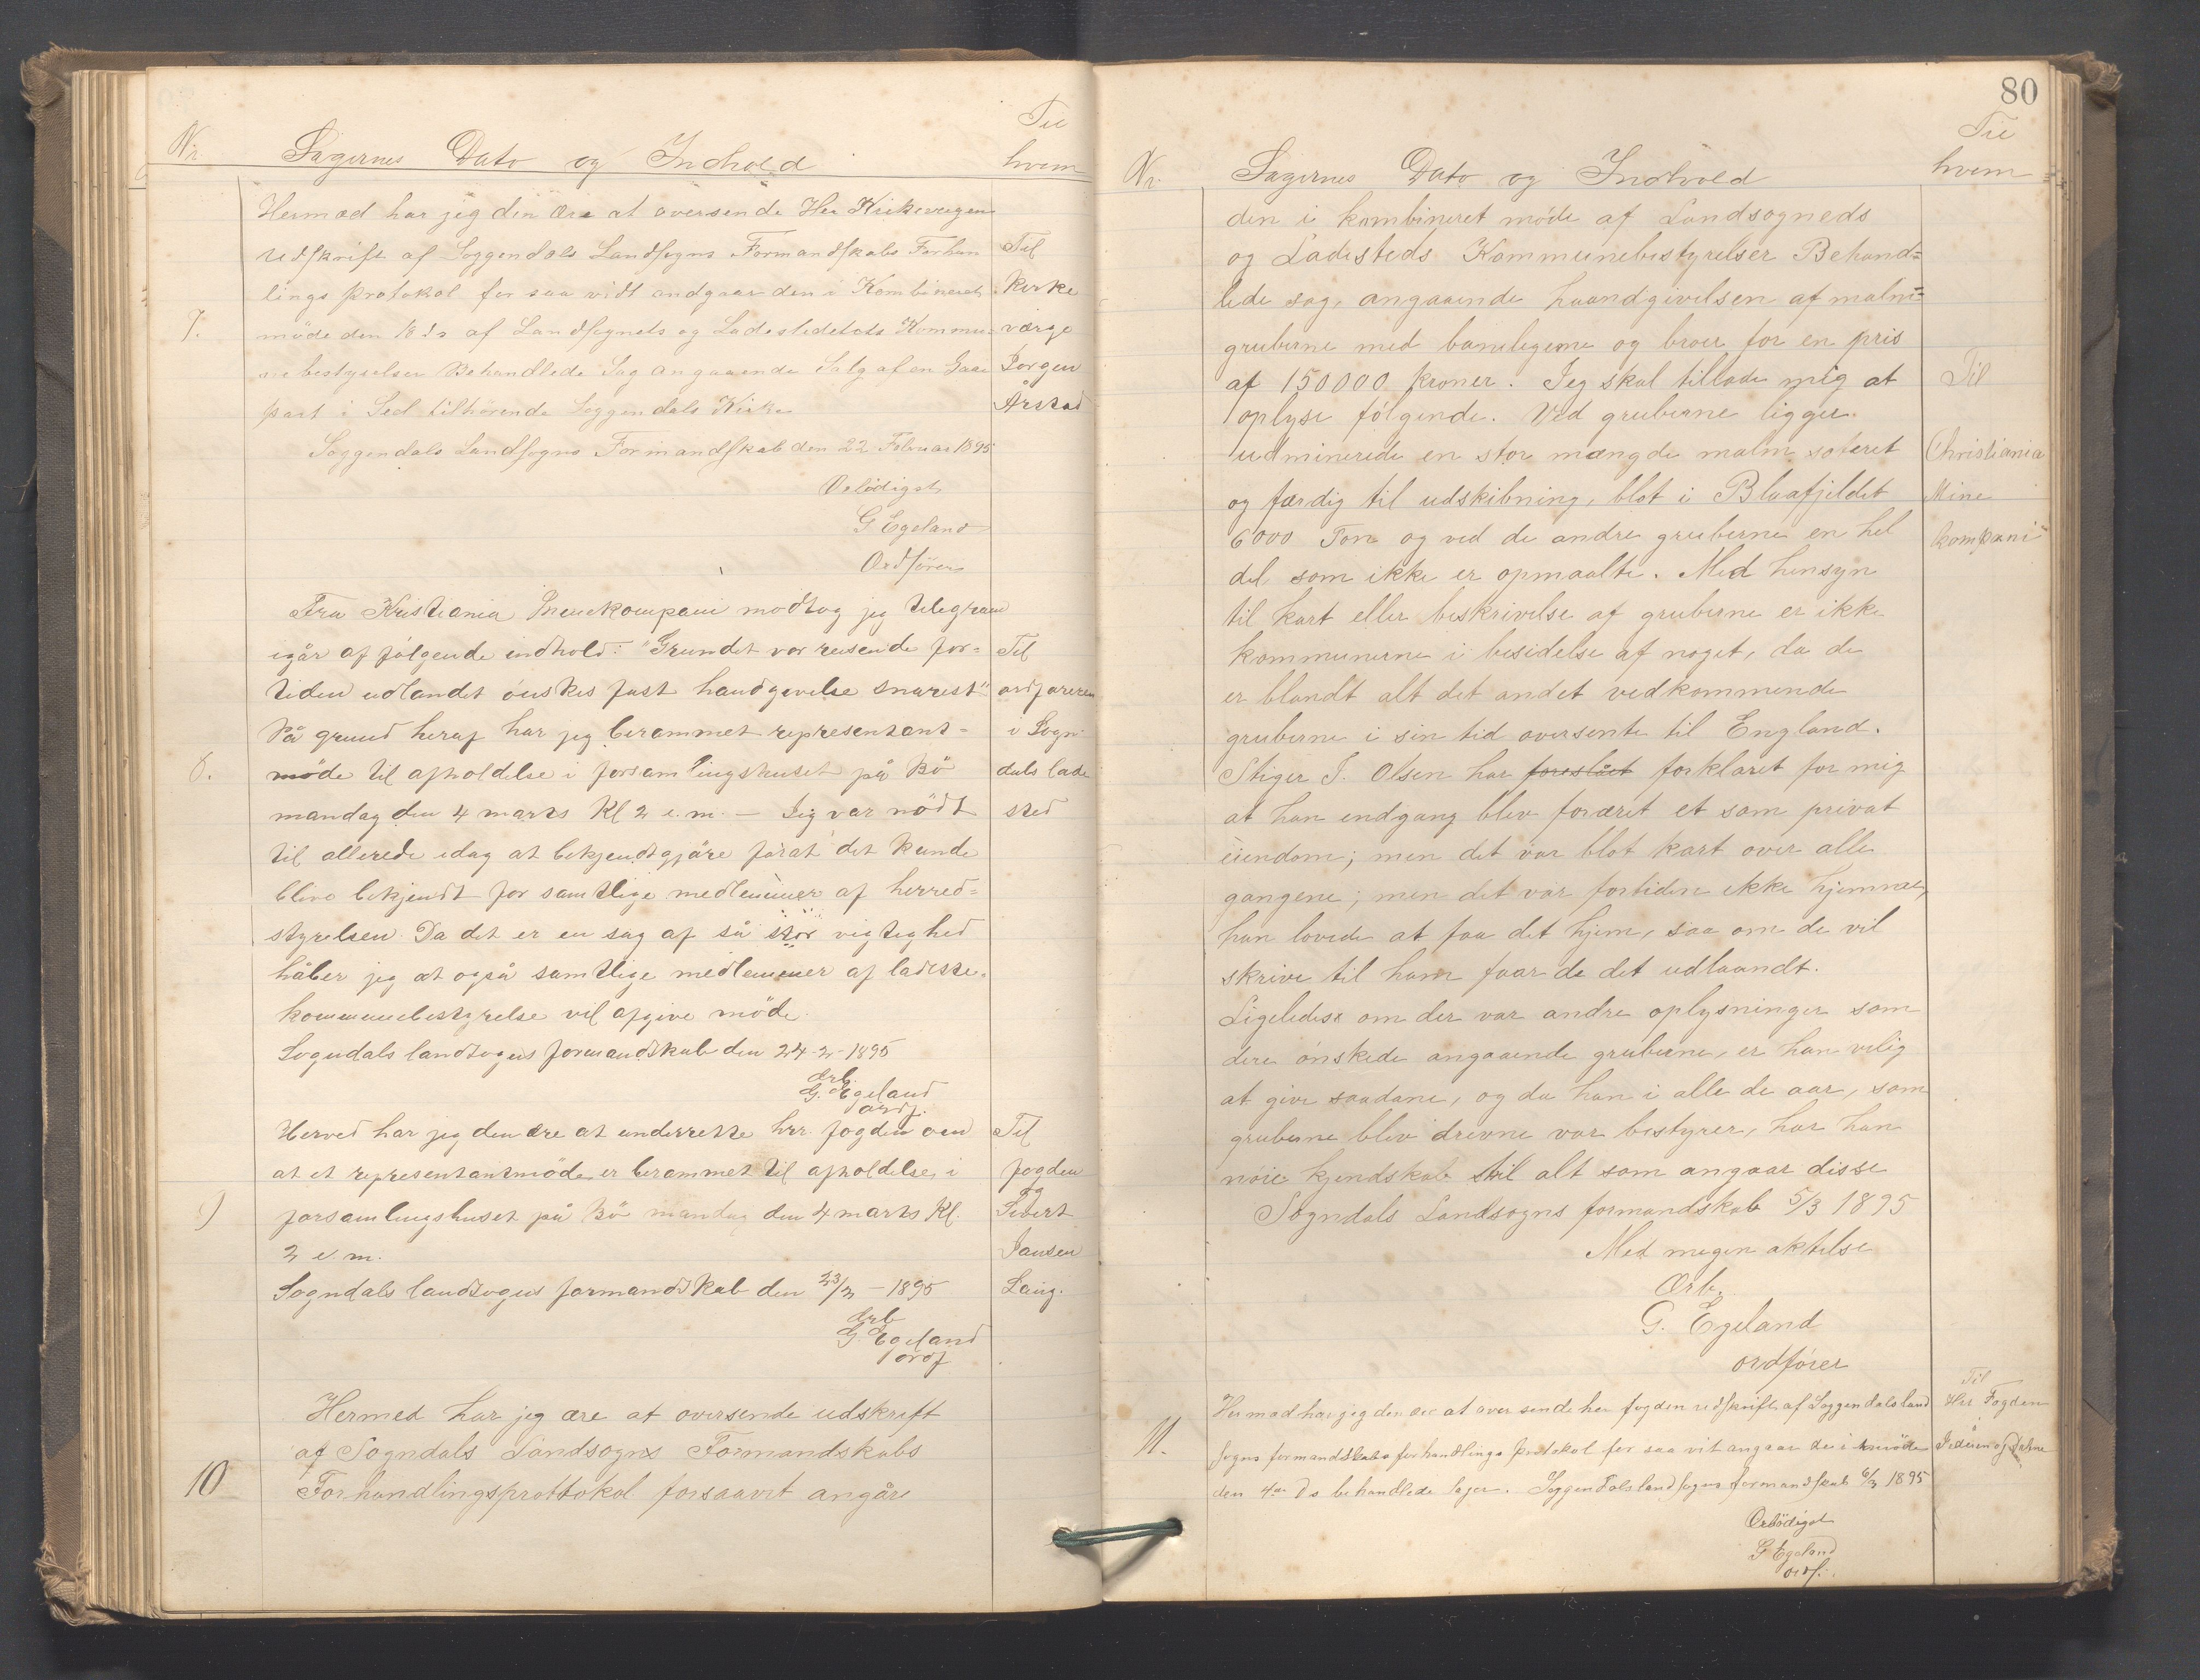 Til
Nr. Sagernes Dato og Indhold hvem
Hermed har jeg den Ære at oversende Her Kirkevergen
udskrift af Soggendals Landsogns Formandskabs Forhan Til
lings protokol for saa vidt andgaar den i Kombineret Kirke
7. møde den 18 ds af Landsognets og Ladestedetets Kommu= værge
nebestyrelser Behandlede Sag angaaende Salg af en Gaar Jorgen
part i Sed tilhörende Soggendals Kirke Årstad
Soggendals Landsogns Formandskab den 22 Februar 1895
G Egeland
Ordförer
Fra Kristiania Minekompani modtog jeg telegram
igår af følgende indhold: "Grundet vor reisende for= Til
tiden udlandet ønskes fast handgivelse snarest" ordføreren
På grund heraf har jeg berammet representant= i Sogn
8. møde til afholdelse i forsamlingshuset på Bö dals lade
mandag den 4 marts Kl 2 e.m. – Jeg var nödt sted
til allerede idag at bekjendtgjöre forat det kunde
blive bekjendt for samtlige medlemmer af herred=
styrelsen. Da det er en sag af så stor vigtighed
håber jeg at også samtlige medlemmer af ladste=
kommunebestyrelse vil afgive møde.
Sogndals landsogns formandskab den 24-2-1895
ærb.
G. Egeland
ordf.
Herved har jeg den ære at underrette hrr. fogden om Til
at et representantmøde er berammet til afholdelse i fogden
9 forsamlingshuset på Bö mandag den 4 marts Kl. Sivert
2 e.m. Jansen
Sogndals landsogns formandskab den 23/2 – 1895
ærb
G. Egeland
ordf
Hermed har jeg ære at oversende udskrift
af Sogndals Landsogns Formandskabs
10 Forhandlingsprottokol forsaavit angåre
80
Til
Nr. Sagernes Dato og Indhold hvem
den i kombineret møde af Landsogneds
og Ladesteds Kommunebestyrelser Behand=
lede sag, angaaende haandgivelsen af malm=
gruberne med banelegeme og broer for en pris
af 150000 kroner. Jeg skal tillade mig at Til
oplyse følgende. Ved gruberne ligger
udminerede en stor mængde malm soteret Christiania
og færdig til udskibning, blot i Blaafjeldet Mine
6000 Ton og ved de andre gruberne en hel kompani
del som ikke er opmaalte. Med hensyn
til kart eller beskrivelse af gruberne er ikke
kommunerne i besidelse af noget, da de
er blandt alt det andet vedkommende
gruberne i sin tid oversente til England.
Stiger J. Olsen har foreslået forklaret for mig
at han endgang blev foræret et som privat
eiendom; men det var blot kart over alle
gangene; men det var fortiden ikke hjemme,
han lovede at faa det hjem, saa om de vil
skrive til ham faar de det udlaandt.
Ligeledes om der var andre oplysninger som
dere ønskede angaaende gruberne, er han velig
at give saadane, og da han i alle de aar, som
gruberne blev drevne var bestyrer, har han
nøie kjendskab til alt som angaar disse
Sogndals Landsogns formandskab 5/3 1895
Med megen aktelse
Ærb.
G. Egeland
ordfører
Til
Hermed har jeg den ære at over sende her fogden udskrift af Soggendals land Hrr Fogden
11. sogns formandskabs forhandlings protokol for saa vit angaar de i møde i
den 4de Ds behandlede sager. Soggendals landsogns formandskab 6/3 1895 Jederen og Dalene
Ærbödigst
G Egeland
ordf.